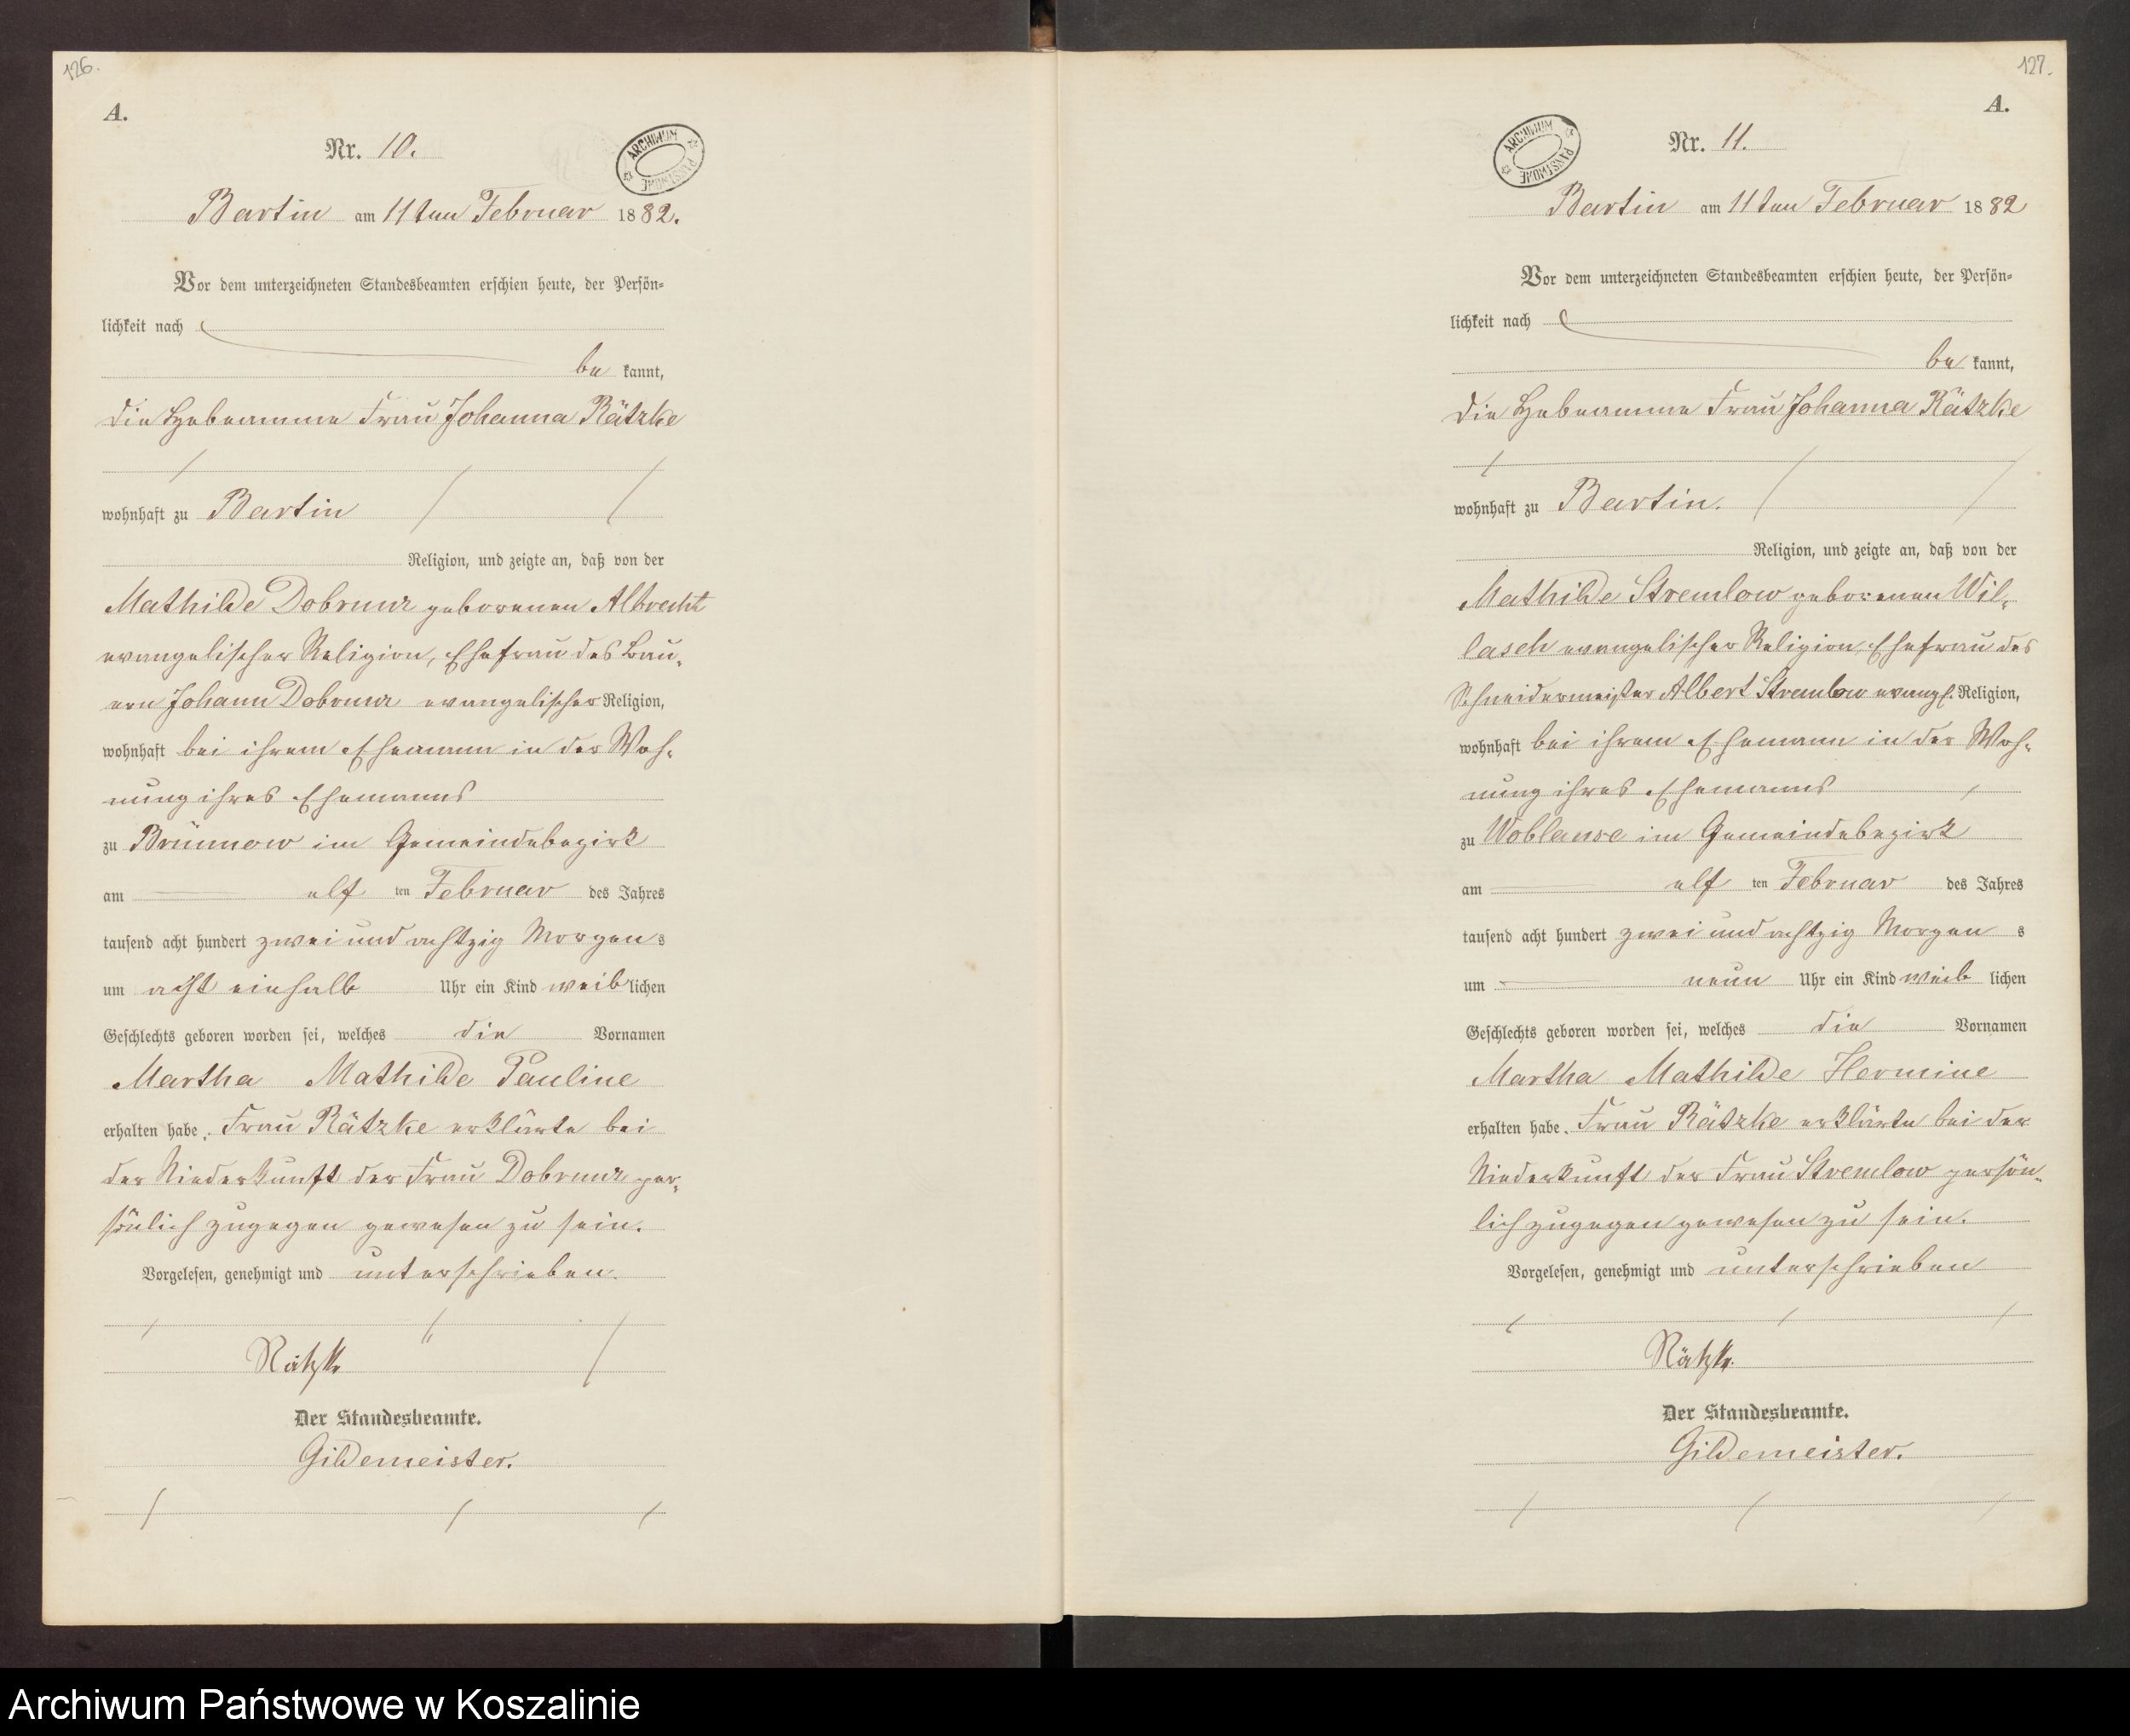 126.
A.
Nr. 10.
ARCHIWUM PAŃSTWOWE
Bartin am 11ten Februar 1882.
Vor dem unterzeichneten Standesbeamten erschien heute, der Persön-
lichkeit nach
be kannt,
die Hebeamme Frau Johanna Rätzke
wohnhaft zu Bartin
Religion, und zeigte an, daß von der
Mathilde Dobrunz geborenen Albrecht
evangelischer Religion, Ehefrau des Bau-
ern Johann Dobrunz evangelischer Religion,
wohnhaft bei ihrem Ehemann in der Woh-
nung ihres Ehemanns
zu Brünnow im Gemeindebezirk
am elf ten Februar des Jahres
tausend acht hundert zwei und achtzig Morgens
um acht einhalb Uhr ein Kind weiblichen
Geschlechts geboren worden sei, welches die Vornamen
Martha Mathilde Pauline
erhalten habe. Frau Rätzke erklärte bei
der Niederkunft der Frau Dobrunz per-
sönlich zugegen gewesen zu sein.
Vorgelesen, genehmigt und unterschrieben.
Rätzke
Der Standesbeamte.
Gildemeister.
127.
A.
Nr. 11.
ARCHIWUM PAŃSTWOWE
Bartin am 11ten Februar 1882
Vor dem unterzeichneten Standesbeamten erschien heute, der Persön-
lichkeit nach
be kannt,
die Hebeamme Frau Johanna Rätzke
wohnhaft zu Bartin.
Religion, und zeigte an, daß von der
Mathilde Stremlow geborenen Wil-
lasch evangelischer Religion, Ehefrau des
Schneidermeister Albert Stremlow evangl. Religion,
wohnhaft bei ihrem Ehemann in der Woh-
nung ihres Ehemanns
zu Woblanse im Gemeindebezirk
am elf ten Februar des Jahres
tausend acht hundert zwei und achtzig Morgen s
um neun Uhr ein Kind weib lichen
Geschlechts geboren worden sei, welches die Vornamen
Martha Mathilde Hermine
erhalten habe. Frau Rätzke erklärte bei der
Niederkunft der Frau Stremlow persön-
lich zugegen gewesen zu sein.
Vorgelesen, genehmigt und unterschrieben
Rätzke.
Der Standesbeamte.
Gildemeister.
Archiwum Państwowe w Koszalinie